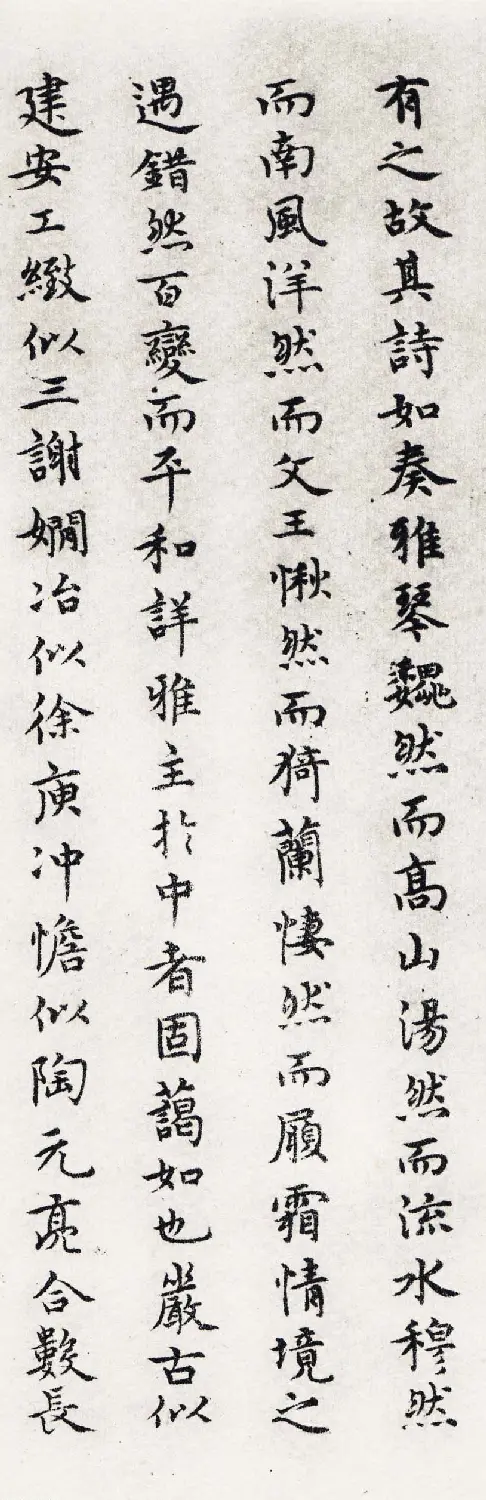 有之故其詩如奏雅琴巍然而髙山湯然而流水穆然
而南風洋然而文王愀然而猗蘭悽然而履霜情境之
遇錯然百變而平和詳雅主於中者固藹如也嚴古似
建安工緻似三謝嫺冶似徐庾冲憺似陶元亮合數長